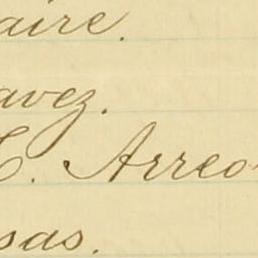 aire.
avez.
C. Arreo
sas.